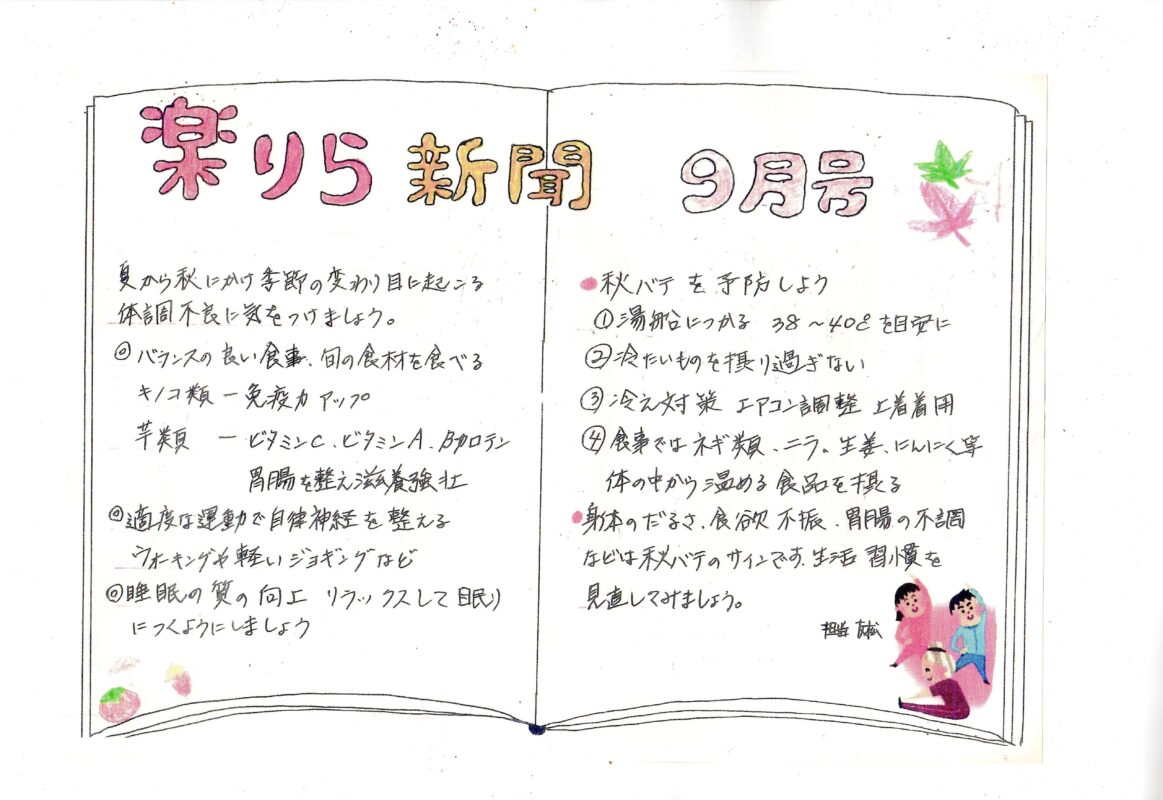 楽りら新聞 9月号
夏から秋にかけ季節の変わり目に起こる
体調不良に気をつけましょう。
◎バランスの良い食事、旬の食材を食べる
キノコ類 ー 免疫力アップ
芋類 ー ビタミンC、ビタミンA、βカロテン
胃腸を整え滋養強壮
◎適度な運動で自律神経を整える
ウォーキングや軽いジョギングなど
◎睡眠の質の向上 リラックスして眠り
につくようにしましょう
●秋バテを予防しよう
①湯船につかる 38〜40℃を目安に
②冷たいものを摂り過ぎない
③冷え対策 エアコン調整 上着着用
④食事ではネギ類、ニラ。生姜、にんにく等
体の中から温める食品を摂る
●身体のだるさ、食欲不振、胃腸の不調
などは秋バテのサインです、生活習慣を
見直してみましょう。
担当